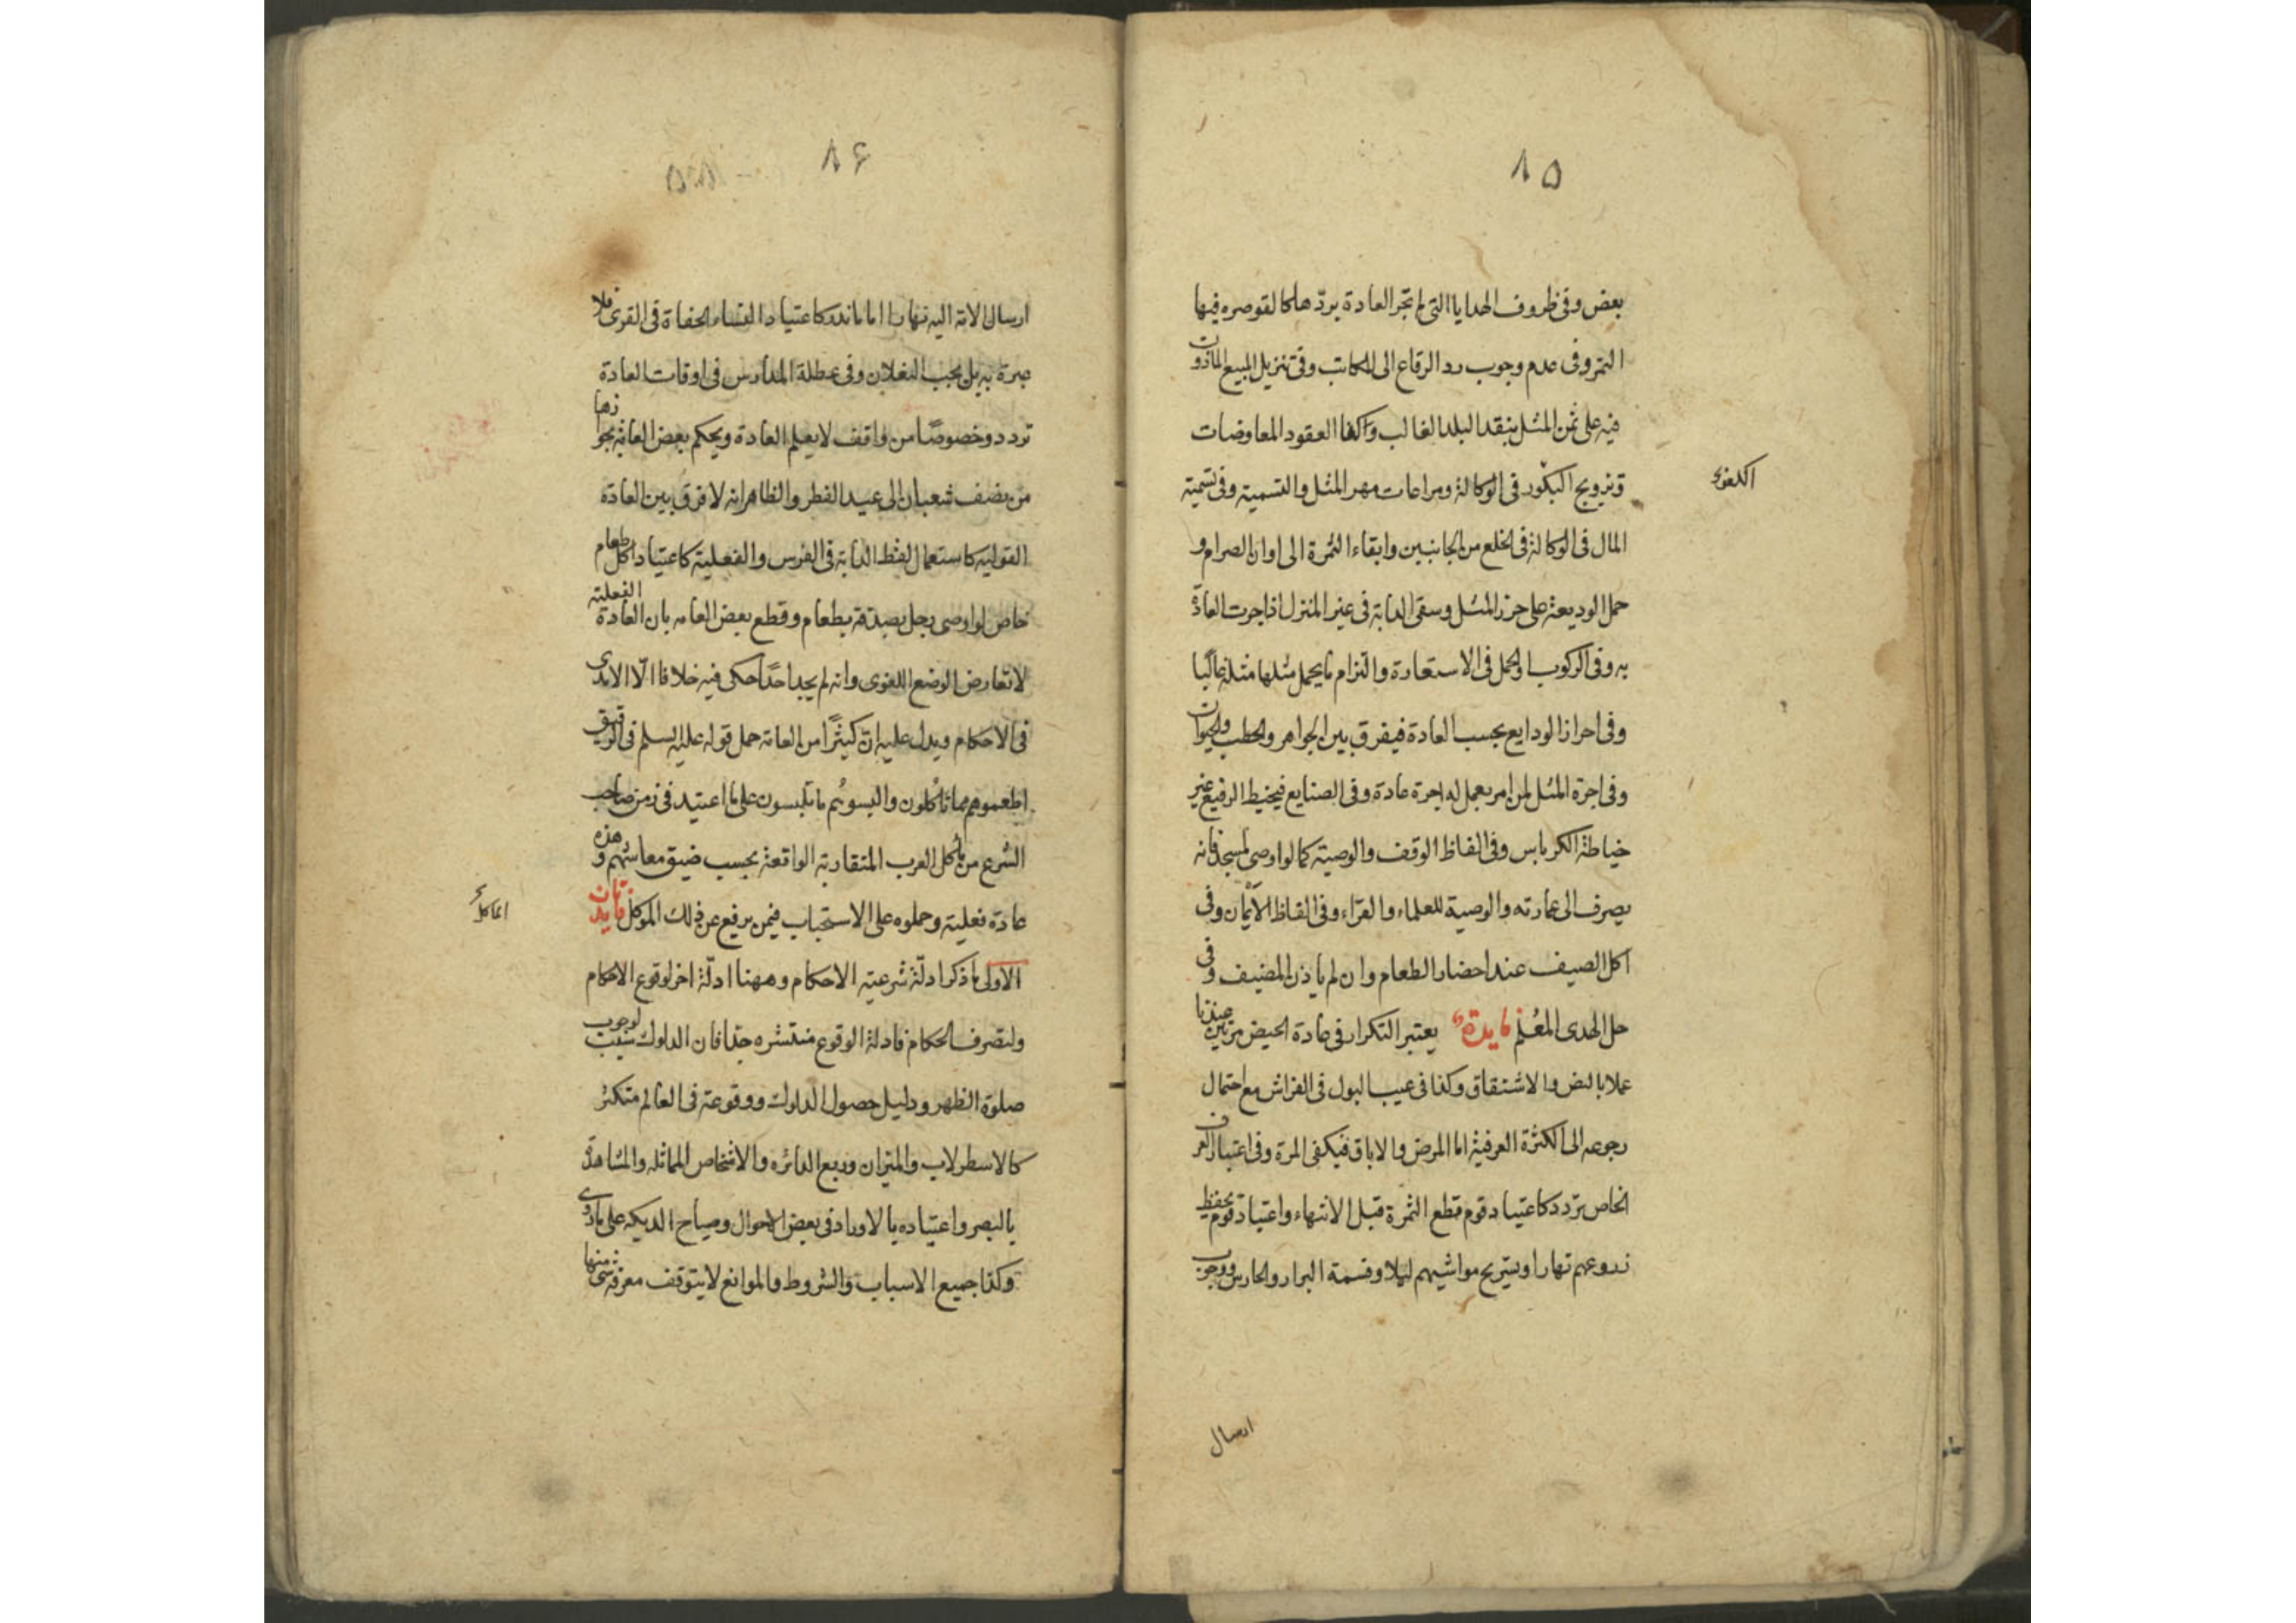 ٨٥
بعض وفى ظروف الهدايا التى لم تجر العادة بردّها كالقوصره فيها
التمر وفى عدم وجوب رد الرقاع الى الكاتب وفى تنزيل المبيع الماذون
فيه على ثمن المثل بنقد البلد الغالب وكذا العقود المعاوضات
وتزويج البكر فى الوكالة ومراعات مهر المثل والتسمية وفى تسمية
المال فى الوكالة فى الخلع من الجانبين وابقاء الثمرة الى اوان الصرام و
حمل الوديعة على حرز المثل وسقى الدابة فى غير المنزل اذا جرت العادة
به وفى الركوب والحمل فى الاستعارة والتزام ما يحمل مثلها مثله غالبا
وفى احراز الودايع بحسب العادة فيفرق بين الجواهر والحطب والحيوان
وفى اجرة المثل لمن امر بعمل له اجرة عادة وفى الصنايع فيخيط الرفيع غير
خياطة الكرباس وفى الفاظ الوقف والوصية كما لو اوصى لمسجد فانه
يصرف الى عمارته والوصية للعلماء والقرّاء وفى الفاظ الأيمان وفى
اكل الضيف عند احضار الطعام وان لم ياذن المضيف وفى
حل الهدى المعلم فايدة يعتبر التكرار فى عادة الحيض مرتين عندنا
عملا بالنص والاشتقاق وكذا فى عيب البول فى الفراش مع احتمال
رجوعه الى الكثرة العرفية اما المرض والاباق فيكفى المرة وفى اعتبار العرف
الخاص تردد كاعتياد قوم قطع الثمرة قبل الانتهاء واعتياد قوم بحفظ
زروعهم نهارا وتسريح مواشيهم ليلا وقسمة البرار والحارس ووجوب
ارسال
٨۶
ارسال الامة اليه نهارا اما ما ندر كاعتياد النساء الحفاة فى القرى فلا
عبرة به بل يجب النعلان وفى عطلة المدارس فى اوقات العادة
تردد وخصوصًا من واقف لا يعلم العادة ويحكم بعض العامة بجوازها
من نصف شعبان الى عيد الفطر والظاهر انه لا فرق بين العادة
القوليه كاستعمال لفظ الدابة فى الفرس والفعلية كاعتياد اكل طعام
خاص لو اوصى رجل بصدقة بطعام وقطع بعض العامه بان العادة الفعلية
لا تعارض الوضع اللغوى وانه لم يجد احدًا حكى فيه خلافا الّا الامدى
فى الاحكام ويدل عليه انّ كثيرًا من العامه حمل قوله عليه السلم فى الرقيق
اطعموهم مما تأكلون والبسوهم ما تلبسون على ما اعتيد فى زمن صاحب
الشرع من مأكل العرب المتقاربة الواقعة بحسب ضيق معاشهم وهذه
عادة فعلية وحملوه على الاستحباب فيمن يرفع عن ذلك الموكل فايدتان
الاولى ما ذكر ادلّة شرعية الاحكام وههنا ادلّة اخر لوقوع الاحكام
ولتصرف الحكام فادلة الوقوع منتشره جدا فان الدلوك سبب لوجوب
صلوة الظهر ودليل حصول الدلوك ووقوعة فى العالم متكثر
كالاسطرلاب والميزان وربع الدائره والاشخاص المماثله والمشاهدة
بالبصر واعتياده بالاوراد فى بعض الاحوال وصياح الديكه على ما روى
وكذا جميع الاسباب والشروط والموانع لا يتوقف معرفة شئ منها